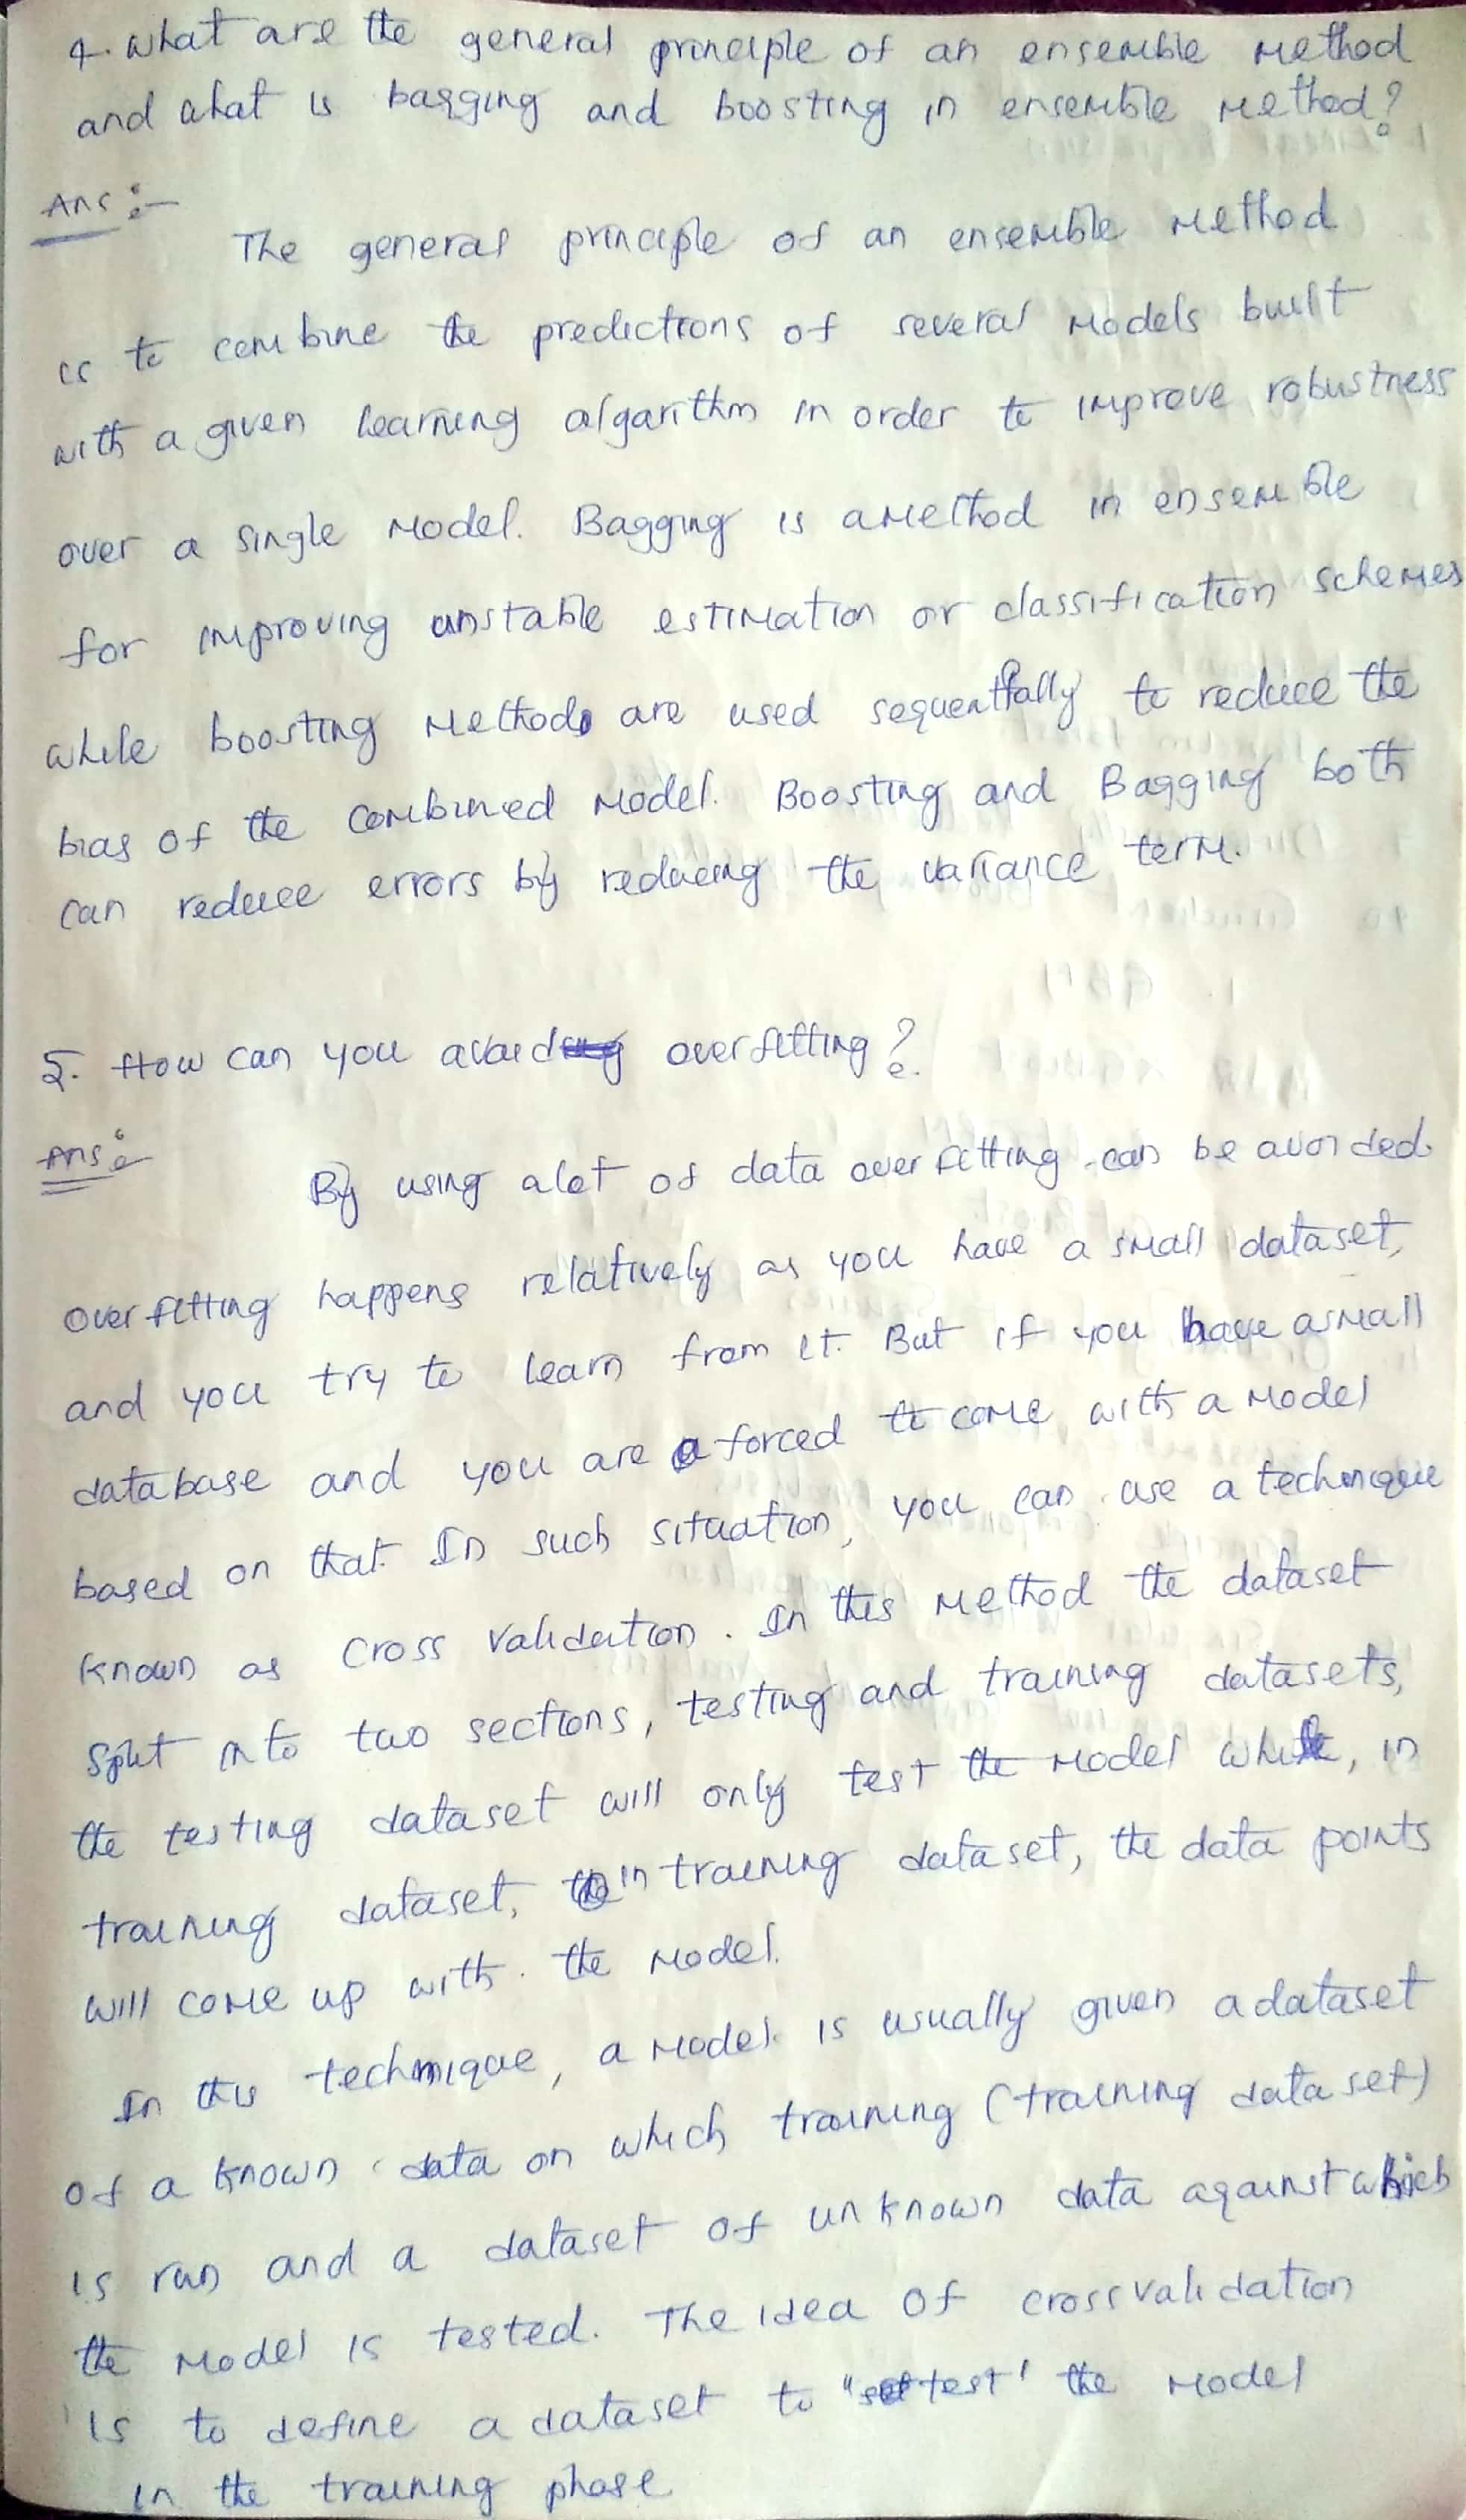 4. What are the general principle of an ensemble method
and what is bagging and boosting in ensemble method?
Ans:-
The general principle of an ensemble method
is to combine the predictions of several models built
with a given learning algorithm in order to improve robustness
over a single model. Bagging is a method in ensemble
for improving unstable estimation or classification schemes
while boosting methods are used sequentially to reduce the
bias of the combined model. Boosting and Bagging both
can reduce errors by reducing the variance term.
5. How can you avoid overfitting?
Ans:
By using a lot of data overfitting can be avoided.
Overfitting happens relatively as you have a small dataset,
and you try to learn from it. But if you have a small
database and you are forced to come with a model
based on that. In such situation, you can use a technique
known as cross validation. In this method the dataset
split into two sections, testing and training datasets,
the testing dataset will only test the model while, in
training dataset, in training dataset, the data points
will come up with. the model.
In this technique, a model is usually given a dataset
of a known data on which training (training data set)
is run and a dataset of unknown data against which
the model is tested. The idea of cross validation
is to define a dataset to "test" the model
in the training phase